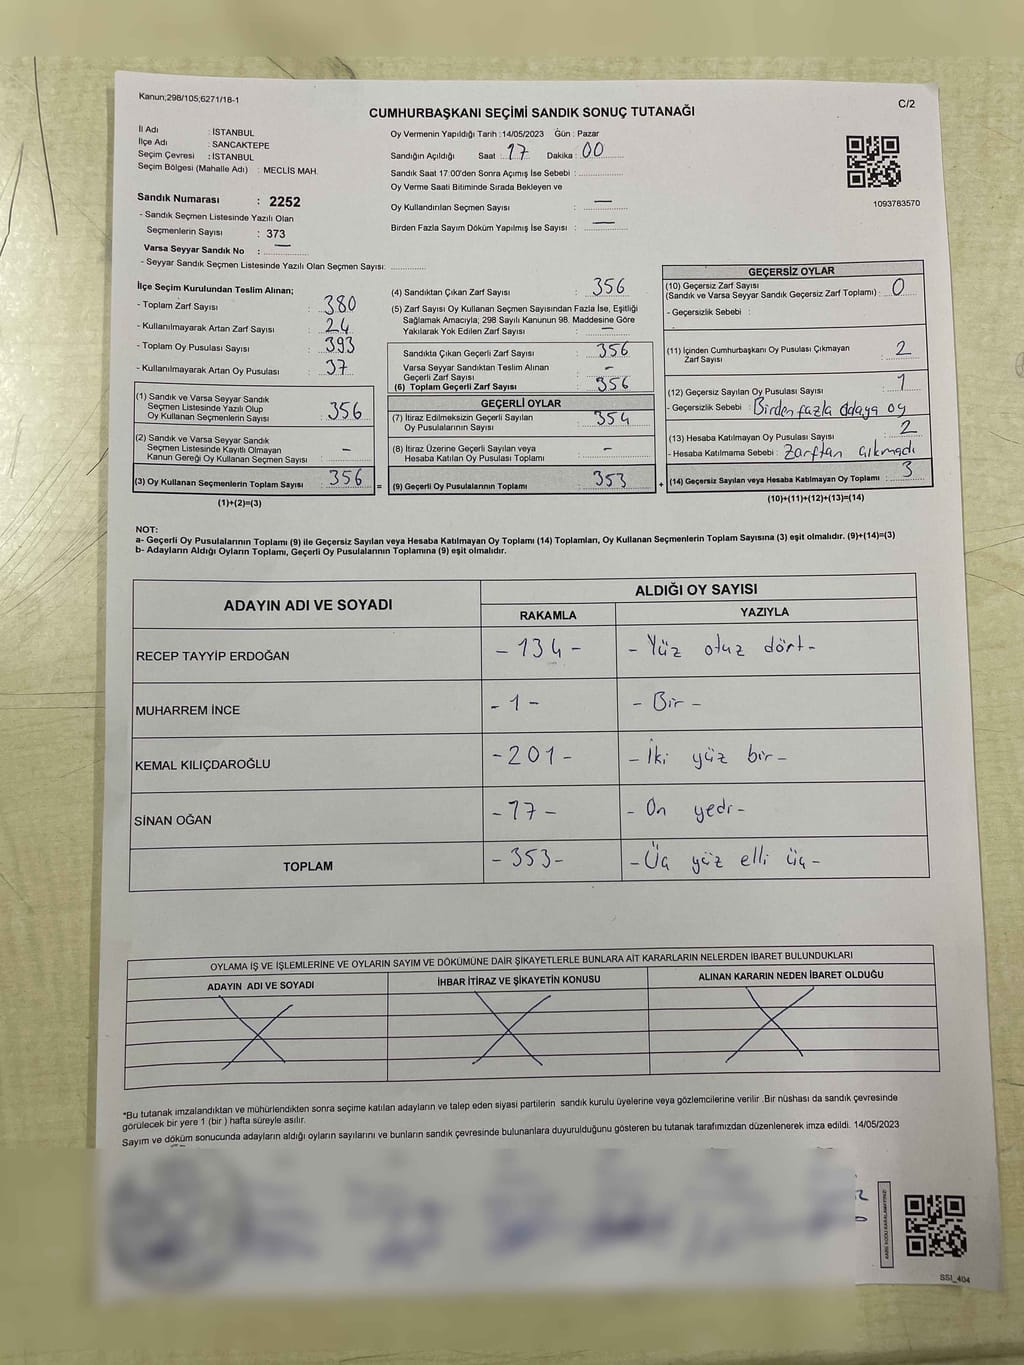 Kanun;298/105;6271/18-1
C/2
CUMHURBAŞKANI SEÇİMİ SANDIK SONUÇ TUTANAĞI
İl Adı : İSTANBUL
İlçe Adı : SANCAKTEPE
Seçim Çevresi : İSTANBUL
Seçim Bölgesi (Mahalle Adı) : MECLİS MAH.
Sandık Numarası : 2252
- Sandık Seçmen Listesinde Yazılı Olan
Seçmenlerin Sayısı : 373
Varsa Seyyar Sandık No : —
- Seyyar Sandık Seçmen Listesinde Yazılı Olan Seçmen Sayısı:
Oy Vermenin Yapıldığı Tarih :14/05/2023 Gün : Pazar
Sandığın Açıldığı Saat : 17 Dakika : 00
Sandık Saat 17.00'den Sonra Açımış İse Sebebi :
Oy Verme Saati Bitiminde Sırada Bekleyen ve
Oy Kullandırılan Seçmen Sayısı : —
Birden Fazla Sayım Döküm Yapılmış İse Sayısı : —
1093783570
İlçe Seçim Kurulundan Teslim Alınan;
- Toplam Zarf Sayısı : 380
- Kullanılmayarak Artan Zarf Sayısı : 24
- Toplam Oy Pusulası Sayısı : 393
- Kullanılmayarak Artan Oy Pusulası : 37
(1) Sandık ve Varsa Seyyar Sandık
Seçmen Listesinde Yazılı Olup
Oy Kullanan Seçmenlerin Sayısı : 356
(2) Sandık ve Varsa Seyyar Sandık
Seçmen Listesinde Kayıtlı Olmayan
Kanun Gereği Oy Kullanan Seçmen Sayısı : -
(3) Oy Kullanan Seçmenlerin Toplam Sayısı : 356 =
(1)+(2)=(3)
(4) Sandıktan Çıkan Zarf Sayısı : 356
(5) Zarf Sayısı Oy Kullanan Seçmen Sayısından Fazla İse, Eşitliği
Sağlamak Amacıyla; 298 Sayılı Kanunun 98. Maddesine Göre
Yakılarak Yok Edilen Zarf Sayısı : —
Sandıkta Çıkan Geçerli Zarf Sayısı : 356
Varsa Seyyar Sandıktan Teslim Alınan
Geçerli Zarf Sayısı : -
(6) Toplam Geçerli Zarf Sayısı : 356
GEÇERLİ OYLAR
(7) İtiraz Edilmeksizin Geçerli Sayılan
Oy Pusulalarının Sayısı : 354
(8) İtiraz Üzerine Geçerli Sayılan veya
Hesaba Katılan Oy Pusulası Toplamı : -
(9) Geçerli Oy Pusulalarının Toplamı : 353 +
GEÇERSİZ OYLAR
(10) Geçersiz Zarf Sayısı
(Sandık ve Varsa Seyyar Sandık Geçersiz Zarf Toplamı) : 0
- Geçersizlik Sebebi :
(11) İçinden Cumhurbaşkanı Oy Pusulası Çıkmayan
Zarf Sayısı : 2
(12) Geçersiz Sayılan Oy Pusulası Sayısı : 1
- Geçersizlik Sebebi : Birden fazla adaya oy
(13) Hesaba Katılmayan Oy Pusulası Sayısı : 2
- Hesaba Katılmama Sebebi : Zarftan çıkmadı
(14) Geçersiz Sayılan veya Hesaba Katılmayan Oy Toplamı : 3
(10)+(11)+(12)+(13)=(14)
NOT:
a- Geçerli Oy Pusulalarının Toplamı (9) ile Geçersiz Sayılan veya Hesaba Katılmayan Oy Toplamı (14) Toplamları, Oy Kullanan Seçmenlerin Toplam Sayısına (3) eşit olmalıdır. (9)+(14)=(3)
b- Adayların Aldığı Oyların Toplamı, Geçerli Oy Pusulalarının Toplamına (9) eşit olmalıdır.
ADAYIN ADI VE SOYADI ALDIĞI OY SAYISI
RAKAMLA YAZIYLA
RECEP TAYYİP ERDOĞAN - 134 - - Yüz otuz dört -
MUHARREM İNCE - 1 - - Bir -
KEMAL KILIÇDAROĞLU - 201 - - İki yüz bir -
SİNAN OĞAN - 17 - - On yedi -
TOPLAM - 353 - - Üç yüz elli üç -
OYLAMA İŞ VE İŞLEMLERİNE VE OYLARIN SAYIM VE DÖKÜMÜNE DAİR ŞİKAYETLERLE BUNLARA AİT KARARLARIN NELERDEN İBARET BULUNDUKLARI
ADAYIN ADI VE SOYADI İHBAR İTİRAZ VE ŞİKAYETİN KONUSU ALINAN KARARIN NEDEN İBARET OLDUĞU
*Bu tutanak imzalandıktan ve mühürlendikten sonra seçime katılan adayların ve talep eden siyasi partilerin sandık kurulu üyelerine veya gözlemcilerine verilir .Bir nüshası da sandık çevresinde
görülecek bir yere 1 (bir ) hafta süreyle asılır.
Sayım ve döküm sonucunda adayların aldığı oyların sayılarını ve bunların sandık çevresinde bulunanlara duyurulduğunu gösteren bu tutanak tarafımızdan düzenlenerek imza edildi. 14/05/2023
SSI_404